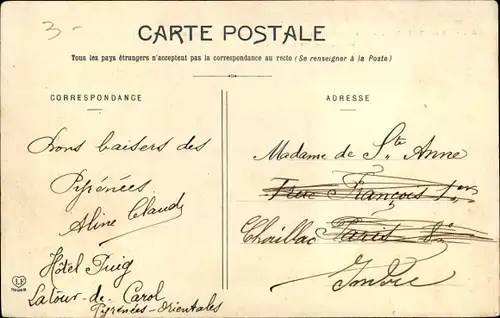 3-
CARTE POSTALE
Tous les pays étrangers n'acceptent pas la correspondance au recto (Se renseigner à la Poste)
CORRESPONDANCE
Bons baisers des
Pyrénées
Aline Claude
Hôtel Puig
Latour-de-Carol
Pyrénées-orientales
ADRESSE
Madame de Ste Anne
7 rue François 1er
Chouillac Paris 8e